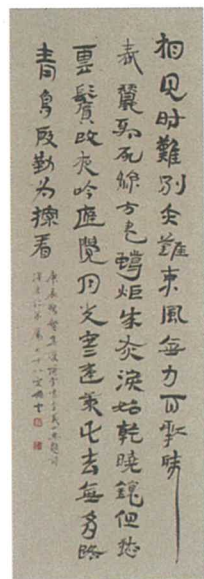 相見时難別亦難東風無力百花殘
春蠶到死絲方尽蠟炬成灰淚始乾曉鏡但愁
雲鬢改夜吟應覺月光寒蓬萊此去無多路
青鳥殷勤為探看
庚辰